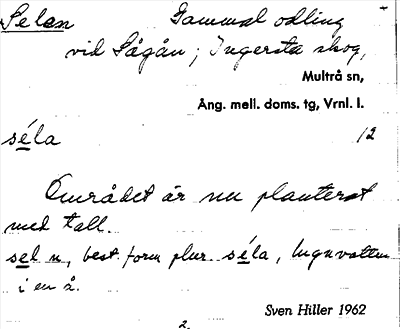 Selen Gammal odling
vid Sågån; Ingersta skog,
Multrå sn,
Ång. mell. doms. tg, Vrnl. l.
séla 12
Området är nu planterat
med tall.
sel n, best. form plur. séla, lugnvatten
i en å.
Sven Hiller 1962
2.